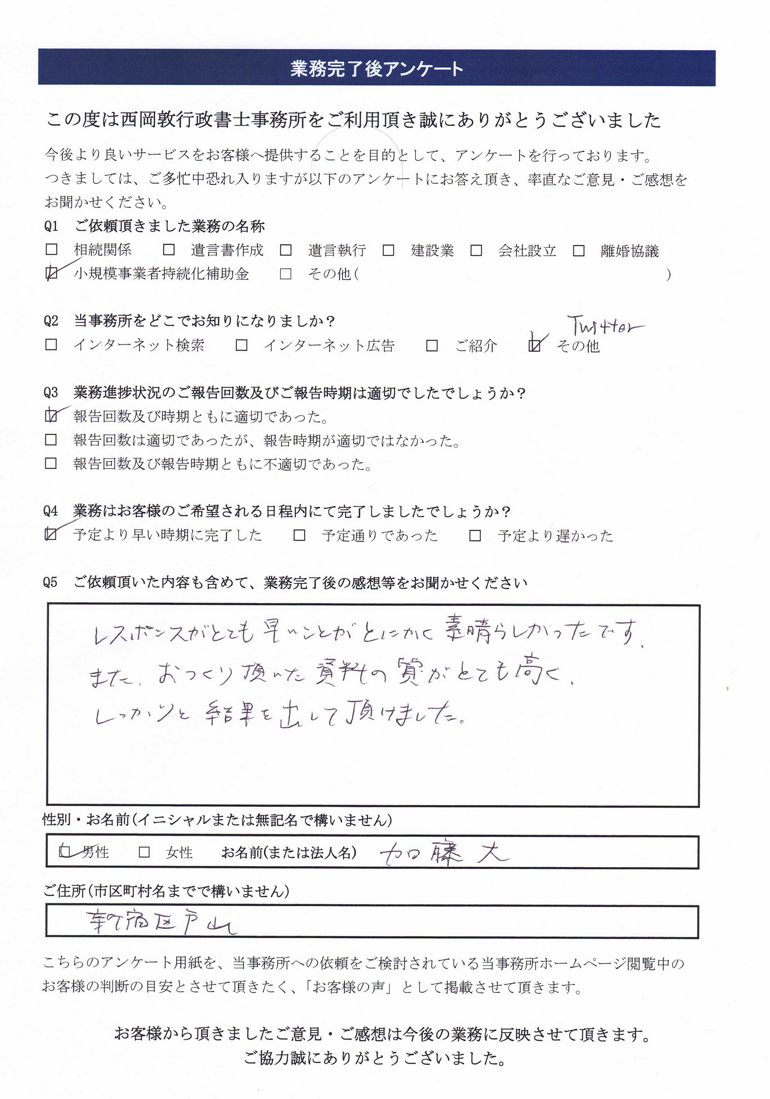 業務完了後アンケート
この度は西岡敦行政書士事務所をご利用頂き誠にありがとうございました
今後より良いサービスをお客様へ提供することを目的として、アンケートを行っております。
つきましては、ご多忙中恐れ入りますが以下のアンケートにお答え頂き、率直なご意見・ご感想を
お聞かせください。
Q1 ご依頼頂きました業務の名称
□ 相続関係 □ 遺言書作成 □ 遺言執行 □ 建設業 □ 会社設立 □ 離婚協議
☑ 小規模事業者持続化補助金 □ その他( )
Q2 当事務所をどこでお知りになりましか？
Twitter
□ インターネット検索 □ インターネット広告 □ ご紹介 ☑ その他
Q3 業務進捗状況のご報告回数及びご報告時期は適切でしたでしょうか？
☑ 報告回数及び時期ともに適切であった。
□ 報告回数は適切であったが、報告時期が適切ではなかった。
□ 報告回数及び報告時期ともに不適切であった。
Q4 業務はお客様のご希望される日程内にて完了しましたでしょうか？
☑ 予定より早い時期に完了した □ 予定通りであった □ 予定より遅かった
Q5 ご依頼頂いた内容も含めて、業務完了後の感想等をお聞かせください
レスポンスがとても早いことがとにかく素晴らしかったです、
また、おつくり頂いた資料の質がとても高く、
しっかりと結果を出して頂けました。
性別・お名前(イニシャルまたは無記名で構いません)
☑ 男性 □ 女性 お名前(または法人名) 加藤大
ご住所(市区町村名までで構いません)
新宿区戸山
こちらのアンケート用紙を、当事務所への依頼をご検討されている当事務所ホームページ閲覧中の
お客様の判断の目安とさせて頂きたく、「お客様の声」として掲載させて頂きます。
お客様から頂きましたご意見・ご感想は今後の業務に反映させて頂きます。
ご協力誠にありがとうございました。